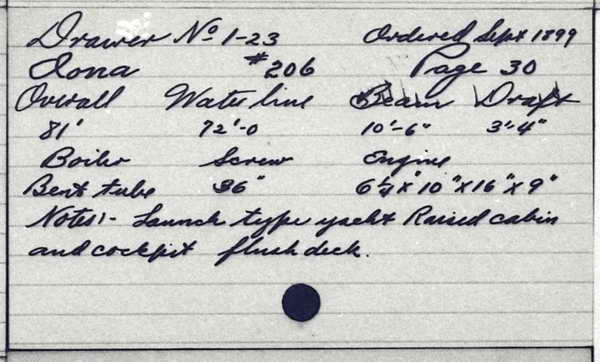 Drawer No 1-23 Ordered Sept 1899
Iona #206 Page 30
Overall Water line Beam Draft
81' 72'-0 10'-6" 3'-4"
Boiler Screw Engine
Bent tube 36" x 10" x 16" x 9"
Notes:- Launch type yacht Raised cabin
and cockpit flush deck.